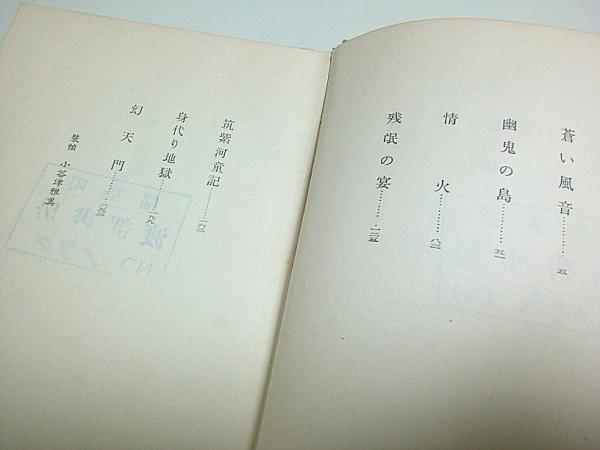 蒼い風音…………五
幽鬼の島…………五一
情火…………八三
残氓の宴…………一二五
筑紫河童記…………一六三
身代り地獄…………一九一
幻天門…………二三三
装幀 小谷津雅美